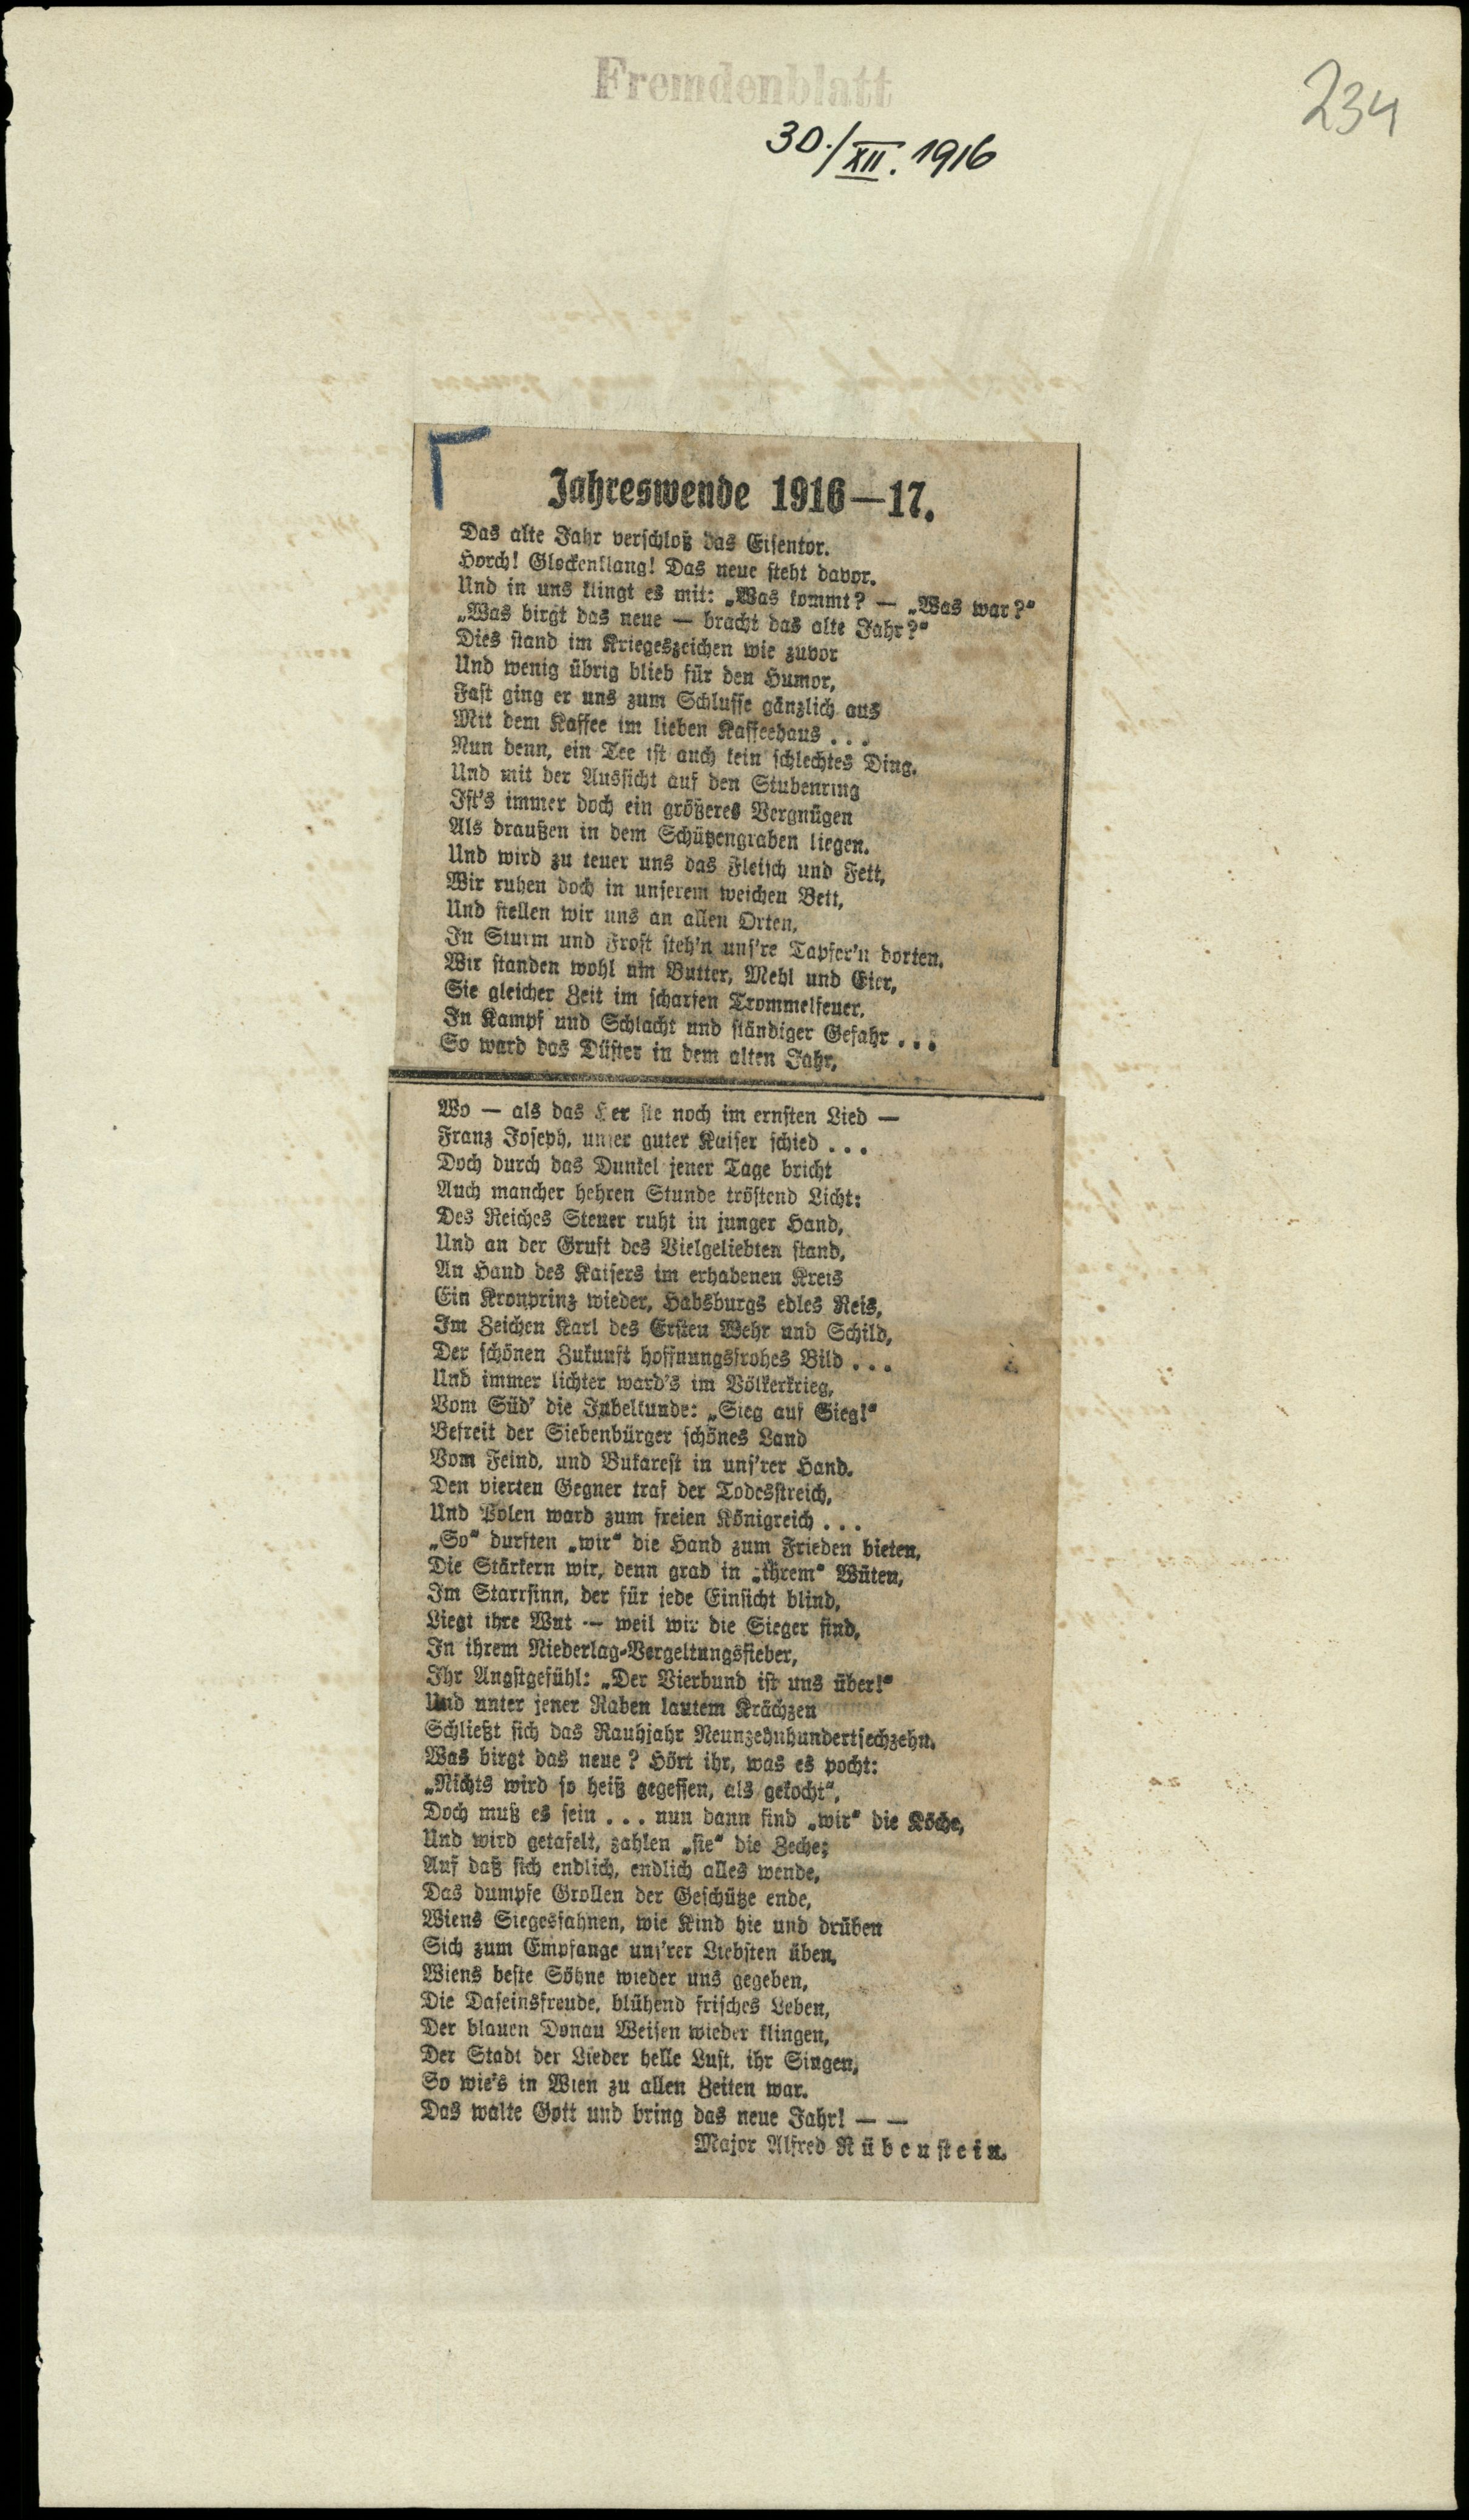 Fremdenblatt
234
30./XII. 1916
Jahreswende 1916—17.
Das alte Jahr verschloß das Eisentor.
Horch! Glockenklang! Das neue steht davor.
Und in uns klingt es mit: „Was kommt? — „Was war?“
„Was birgt das neue — bracht das alte Jahr?“
Dies stand im Kriegeszeichen wie zuvor
Und wenig übrig blieb für den Humor,
Fast ging er uns zum Schlusse gänzlich aus
Mit dem Kaffee im lieben Kaffeehaus . . .
Nun denn, ein Tee ist auch kein schlechtes Ding.
Und mit der Aussicht auf den Stubenring
Ist's immer doch ein größeres Vergnügen
Als draußen in dem Schützengraben liegen.
Und wird zu teuer uns das Fleisch und Fett,
Wir ruhen doch in unserem weichen Bett,
Und stellen wir uns an allen Orten,
In Sturm und Frost steh'n uns're Tapfer'n dorten.
Wir standen wohl um Butter, Mehl und Eier,
Sie gleicher Zeit im scharfen Trommelfeuer,
In Kampf und Schlacht und ständiger Gefahr . . .
So ward das Düster in dem alten Jahr,
Wo — als das sie noch im ernsten Lied —
Franz Joseph, unser guter Kaiser schied . . .
Doch durch das Dunkel jener Tage bricht
Auch mancher hehren Stunde tröstend Licht:
Des Reiches Steuer ruht in junger Hand,
Und an der Gruft des Vielgeliebten stand,
An Hand des Kaisers im erhabenen Kreis
Ein Kronprinz wieder, Habsburgs edles Reis,
Im Zeichen Karl des Ersten Wehr und Schild,
Der schönen Zukunft hoffnungsfrohes Bild . . .
Und immer lichter ward's im Völkerkrieg,
Vom Süd' die Jubelkunde: „Sieg auf Sieg!“
Befreit der Siebenbürger schönes Land
Vom Feind, und Bukarest in uns'rer Hand.
Den vierten Gegner traf der Todesstreich,
Und Polen ward zum freien Königreich . . .
„So“ durften „wir“ die Hand zum Frieden bieten,
Die Stärkern wir, denn grad in „ihrem“ Wüten,
Im Starrsinn, der für jede Einsicht blind,
Liegt ihre Wut — weil wir die Sieger sind,
In ihrem Niederlag-Vergeltungsfieber,
Ihr Angstgefühl: „Der Vierbund ist uns über!“
Und unter jener Raben lautem Krächzen
Schließt sich das Rauhjahr Neunzehnhundertsechzehn.
Was birgt das neue? Hört ihr, was es pocht:
„Nichts wird so heiß gegessen, als gekocht“,
Doch muß es sein . . . nun dann sind „wir“ die Köche,
Und wird getafelt, zahlen „sie“ die Zeche;
Auf daß sich endlich, endlich alles wende,
Das dumpfe Grollen der Geschütze ende,
Wiens Siegesfahnen, wie Kind hie und drüben
Sich zum Empfange uns'rer Liebsten üben,
Wiens beste Söhne wieder uns gegeben,
Die Daseinsfreude, blühend frisches Leben,
Der blauen Donau Weisen wieder klingen,
Der Stadt der Lieder helle Lust, ihr Singen,
So wie's in Wien zu allen Zeiten war.
Das walte Gott und bring das neue Jahr! — —
Major Alfred Rübenstein.